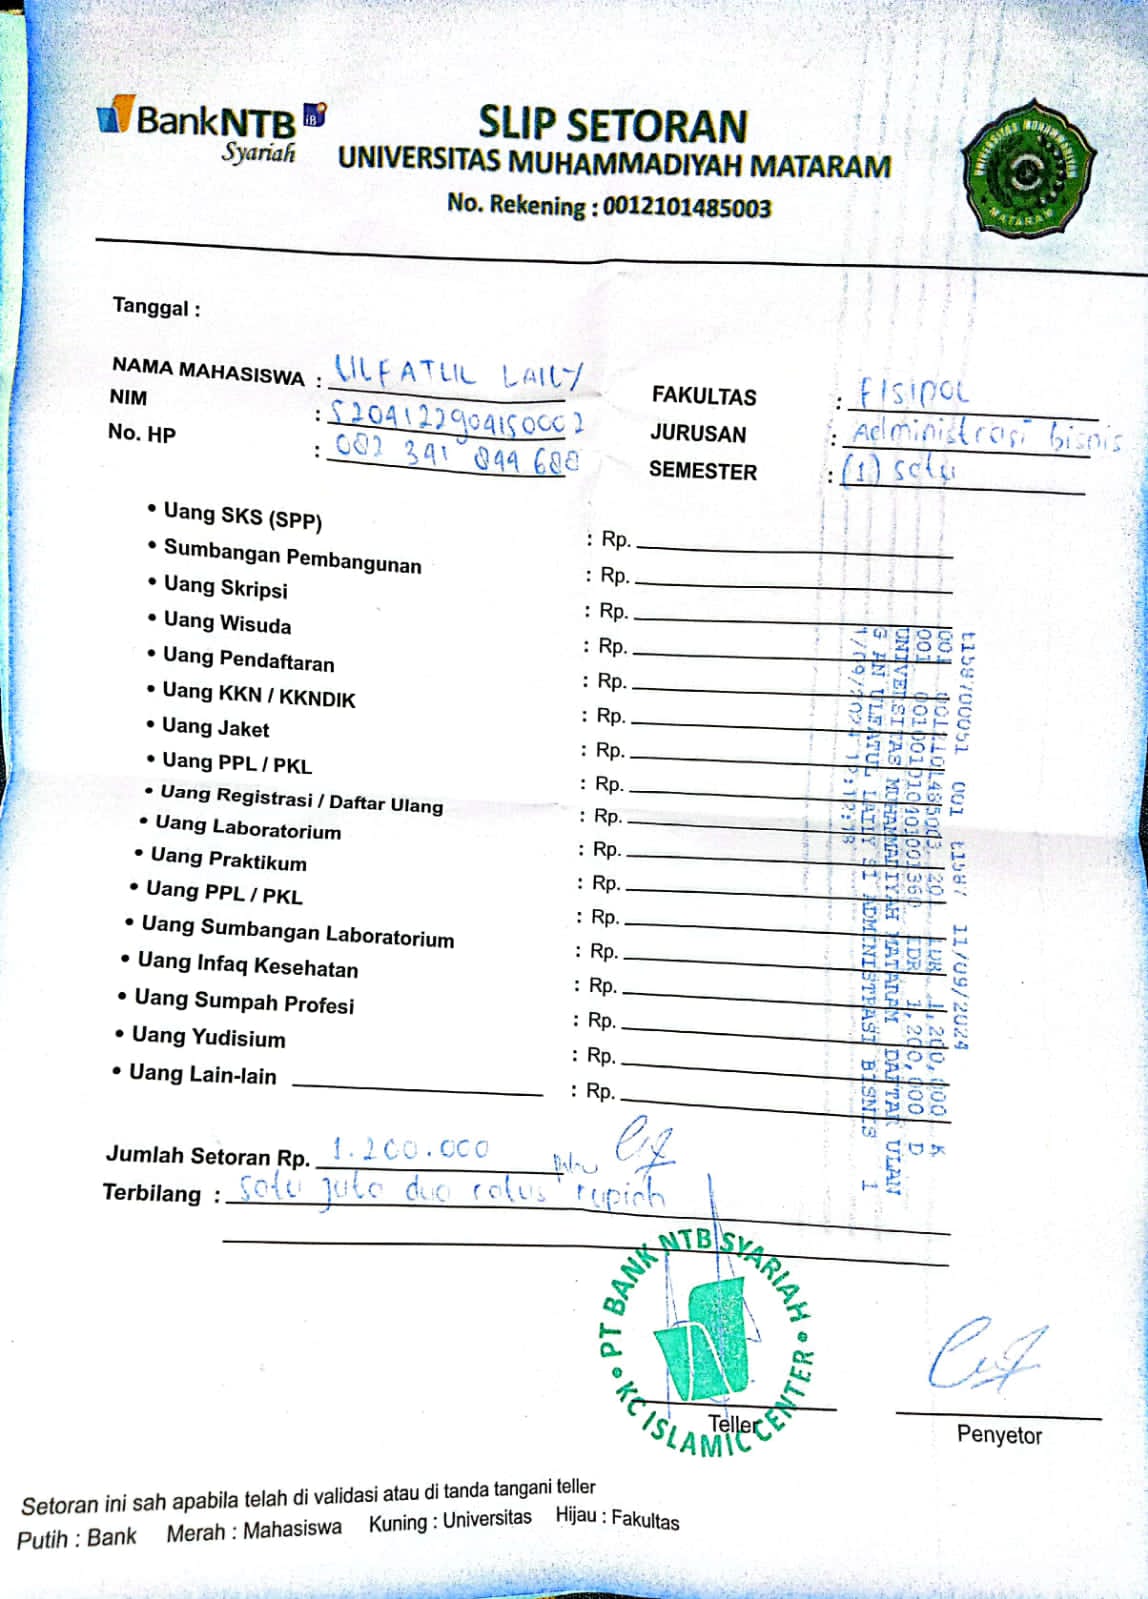 BankNTB iB
Syariah
SLIP SETORAN
UNIVERSITAS MUHAMMADIYAH MATARAM
No. Rekening : 0012101485003
UNIVERSITAS MUHAMMADIYAH
MATARAM
Tanggal :
NAMA MAHASISWA : ULFATUL LAILY
NIM : 5204122904150002
No. HP : 082 341 844 680
FAKULTAS : FISIPOL
JURUSAN : Administrasi bisnis
SEMESTER : (1) satu
• Uang SKS (SPP) : Rp.
• Sumbangan Pembangunan : Rp.
• Uang Skripsi : Rp.
• Uang Wisuda : Rp.
• Uang Pendaftaran : Rp.
• Uang KKN / KKNDIK : Rp.
• Uang Jaket : Rp.
• Uang PPL / PKL : Rp.
• Uang Registrasi / Daftar Ulang : Rp.
• Uang Laboratorium : Rp.
• Uang Praktikum : Rp.
• Uang PPL / PKL : Rp.
• Uang Sumbangan Laboratorium : Rp.
• Uang Infaq Kesehatan : Rp.
• Uang Sumpah Profesi : Rp.
• Uang Yudisium : Rp.
• Uang Lain-lain : Rp.
t1587 11/09/2024
001 0012101485003 201 IDR 1,200,000 K
001 IDR 1,200,000 D
UNIVERSITAS MUHAMMADIYAH MATARAM DAFTAR ULAN
G AN ULFATUL LAILY S1 ADMINISTRASI BISNES 1
Jumlah Setoran Rp. 1.200.000
Terbilang : Satu juta dua ratus rupiah
PT BANK NTB SYARIAH
KC ISLAMIC CENTER
Teller
Penyetor
Setoran ini sah apabila telah di validasi atau di tanda tangani teller
Putih : Bank Merah : Mahasiswa Kuning : Universitas Hijau : Fakultas